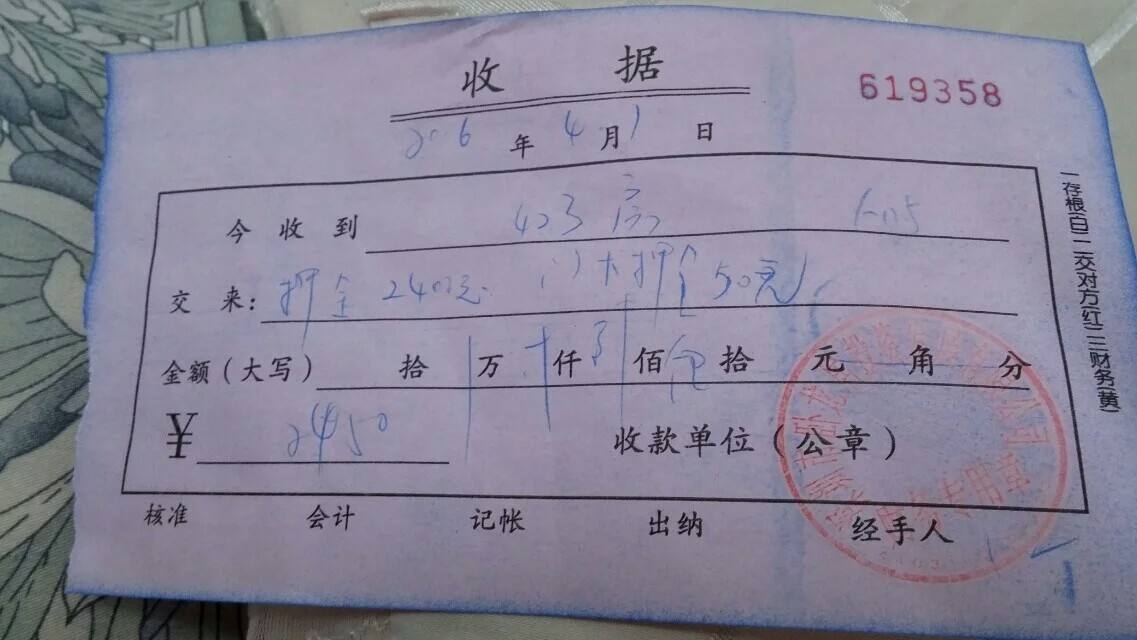 收 据
619358
206 年 4 月 1 日
今 收 到 403房
交 来： 押金 2400元 门卡押金50元
金额（大写） 拾 万 仟 佰 拾 元 角 分
¥ 2450
收款单位（公章）
核准 会计 记帐 出纳 经手人
一存根(白)二交对方(红)三财务(黄)
专用章